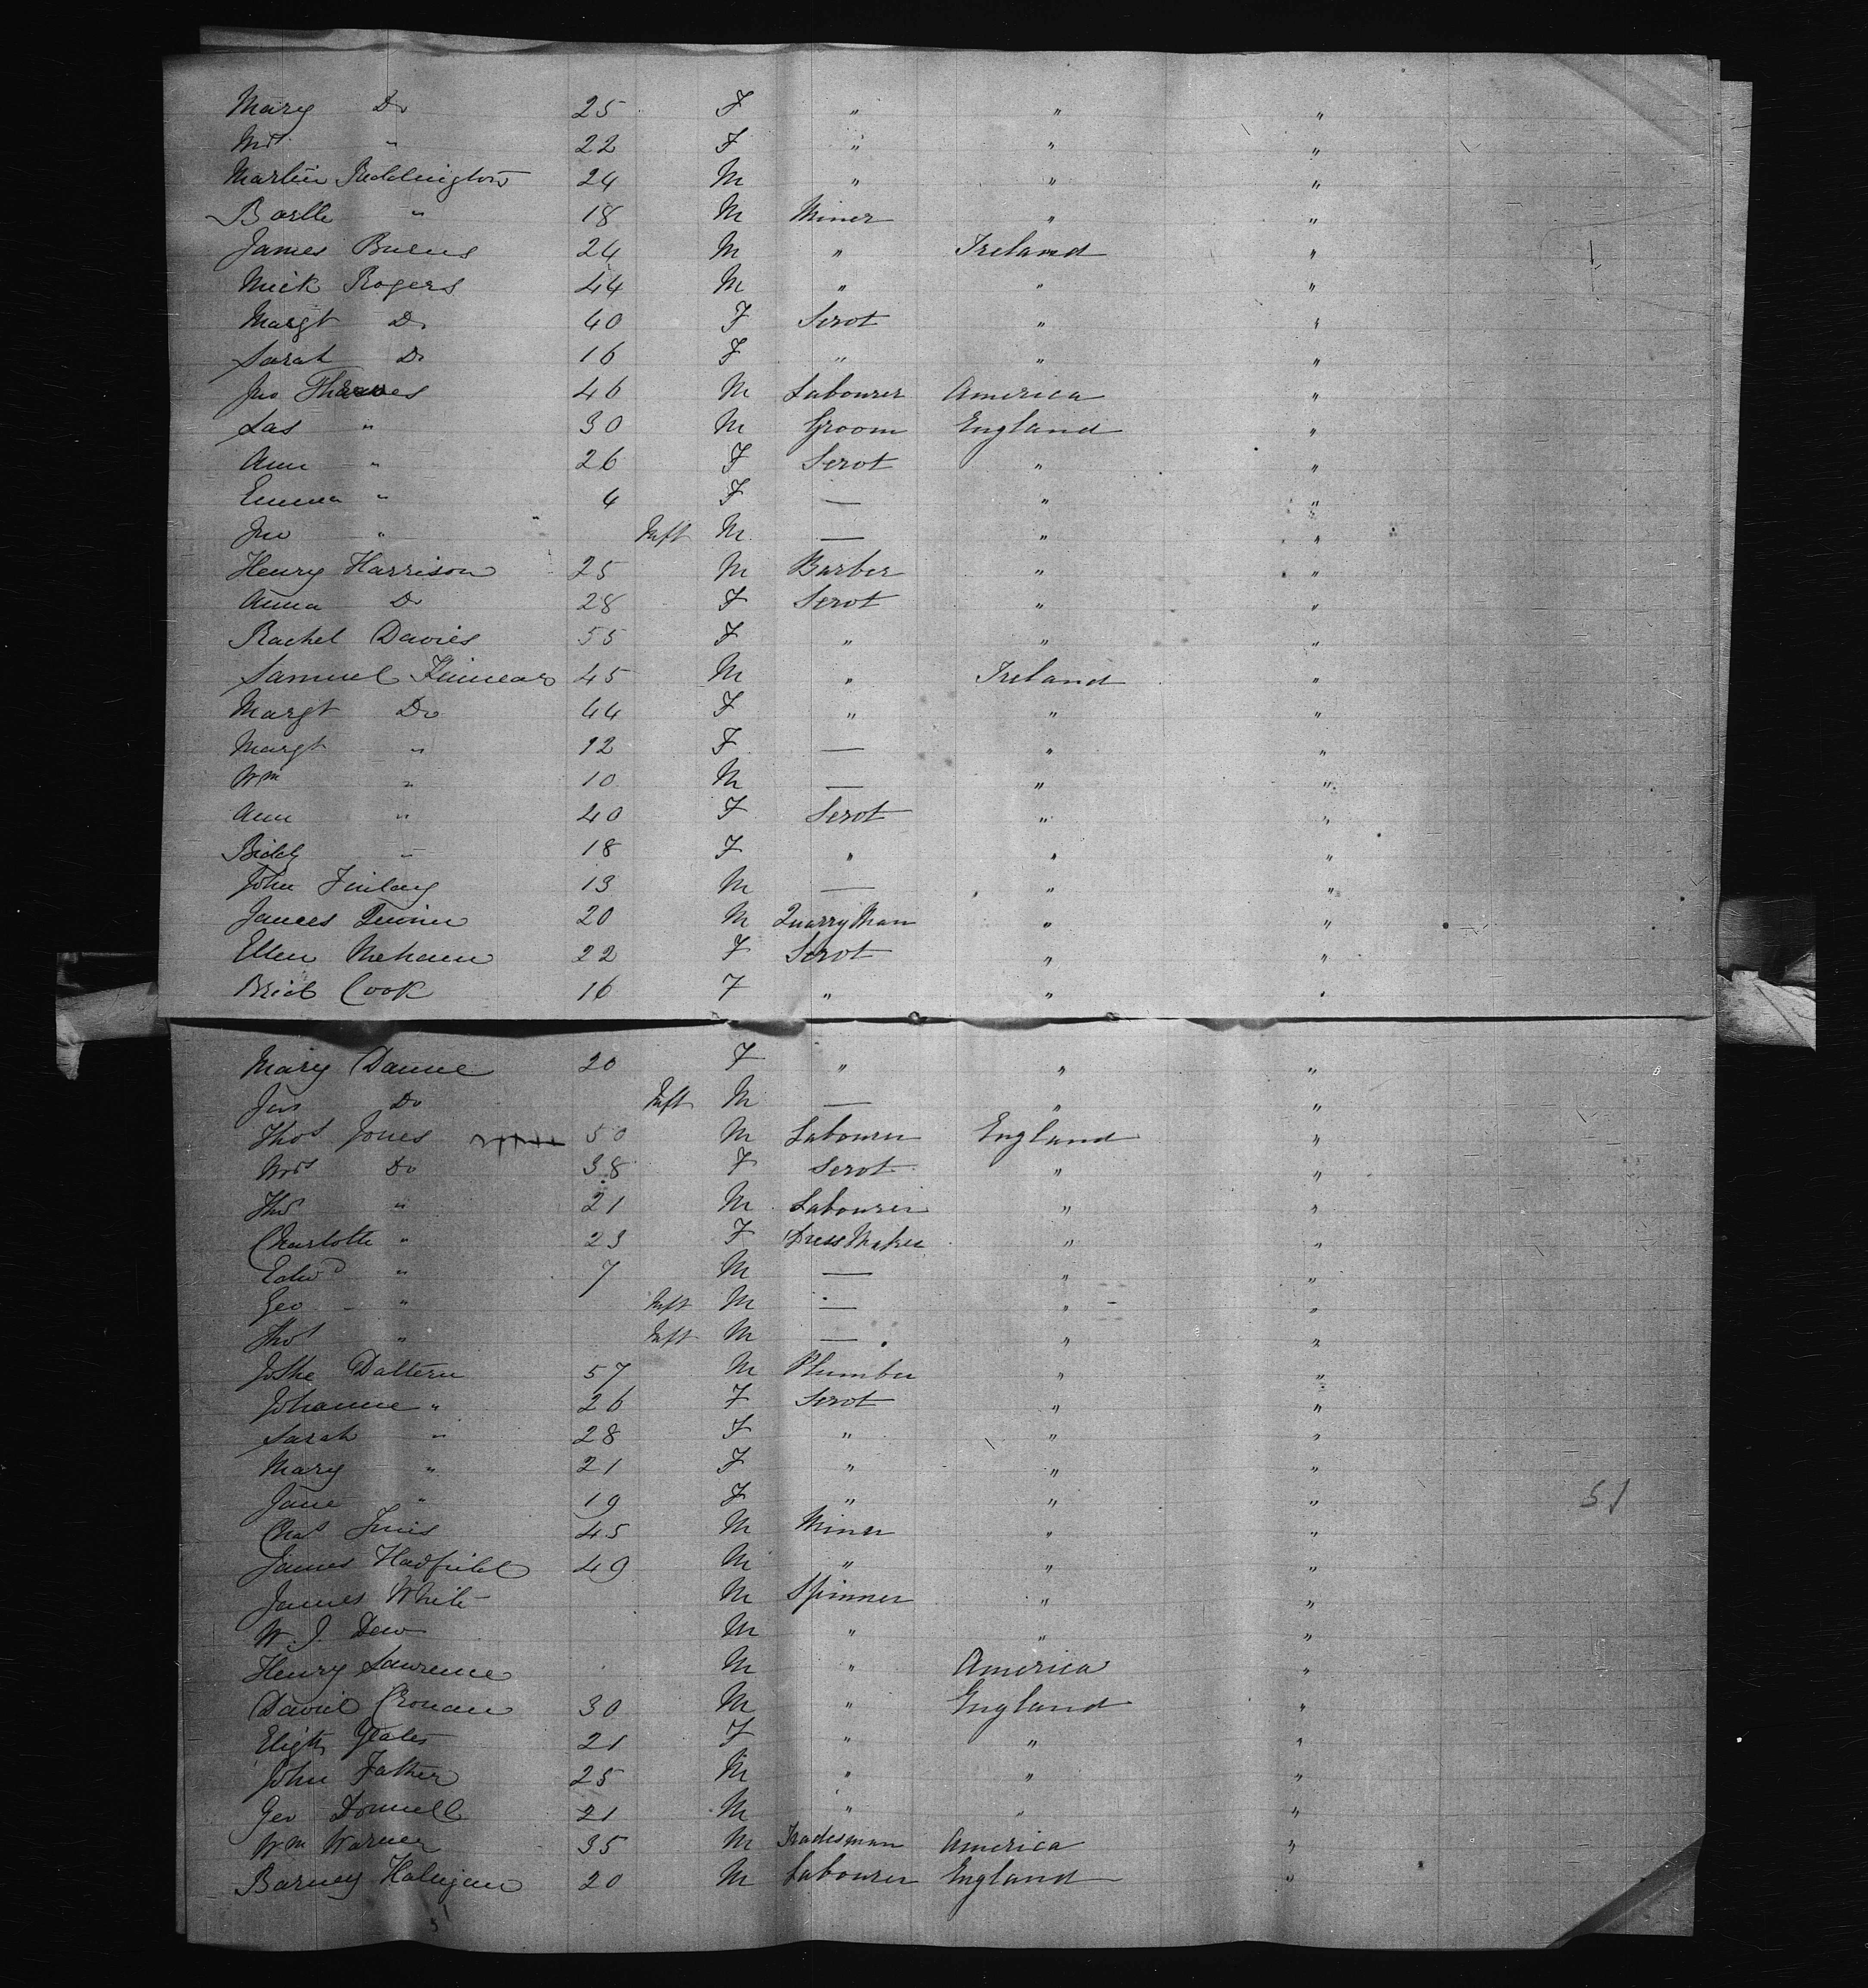 Mary Do 25 F " " "
Mrs " 22 F " " "
Martin Reddington 24 M " " "
" 18 M Miner " "
James Burns 24 M " Ireland "
Mick Rogers 44 M " " "
Margt Do 40 F Servt " "
Sarah Do 16 F " " "
Jno 46 M Labourer America "
Jas " 30 M Groom England "
Ann " 26 F Servt " "
Emma " 4 F — " "
Jno " Inft M — " "
Henry Harrison 25 M Barber " "
Anna Do 28 F Servt " "
Rachel Davies 55 F " " "
Samuel Kinnear 45 M " Ireland "
Margt Do 44 F " " "
Margt " 12 F — " "
Wm " 10 M — " "
Ann " 40 F Servt " "
Biddy " 18 F " " "
John Finlay 13 M — " "
James 20 M Quarry Man " "
Ellen Mehann 22 F Servt " "
Bridt Cook 16 F " " "
Mary Danne 20 F " " "
Jno Do Inft M — " "
Thos Jones 50 M Labourer England "
Mrs Do 38 F Servt " "
Thos " 21 M Labourer " "
Charlotte " 23 F Dress Maker " "
Edwd " 7 M — " "
Geo " Inft M — " "
Thos " Inft M — " "
Dattern 57 M Plumber " "
Johanne " 26 F Servt " "
Sarah " 28 F " " "
Mary " 21 F " " "
Jane " 19 F " " "
51
Chas 45 M Miner " "
James Hadfield 49 M " " "
James White M Spinner " "
W. J. Dew M " " "
Henry Lawrence M " America "
David Cronan 30 M " England "
Elizth Yeates 21 F " " "
John Father 25 M " " "
Geo Donnell 21 M " " "
Wm Warner 35 M Tradesman America "
Barney Halligan 20 M Labourer England "